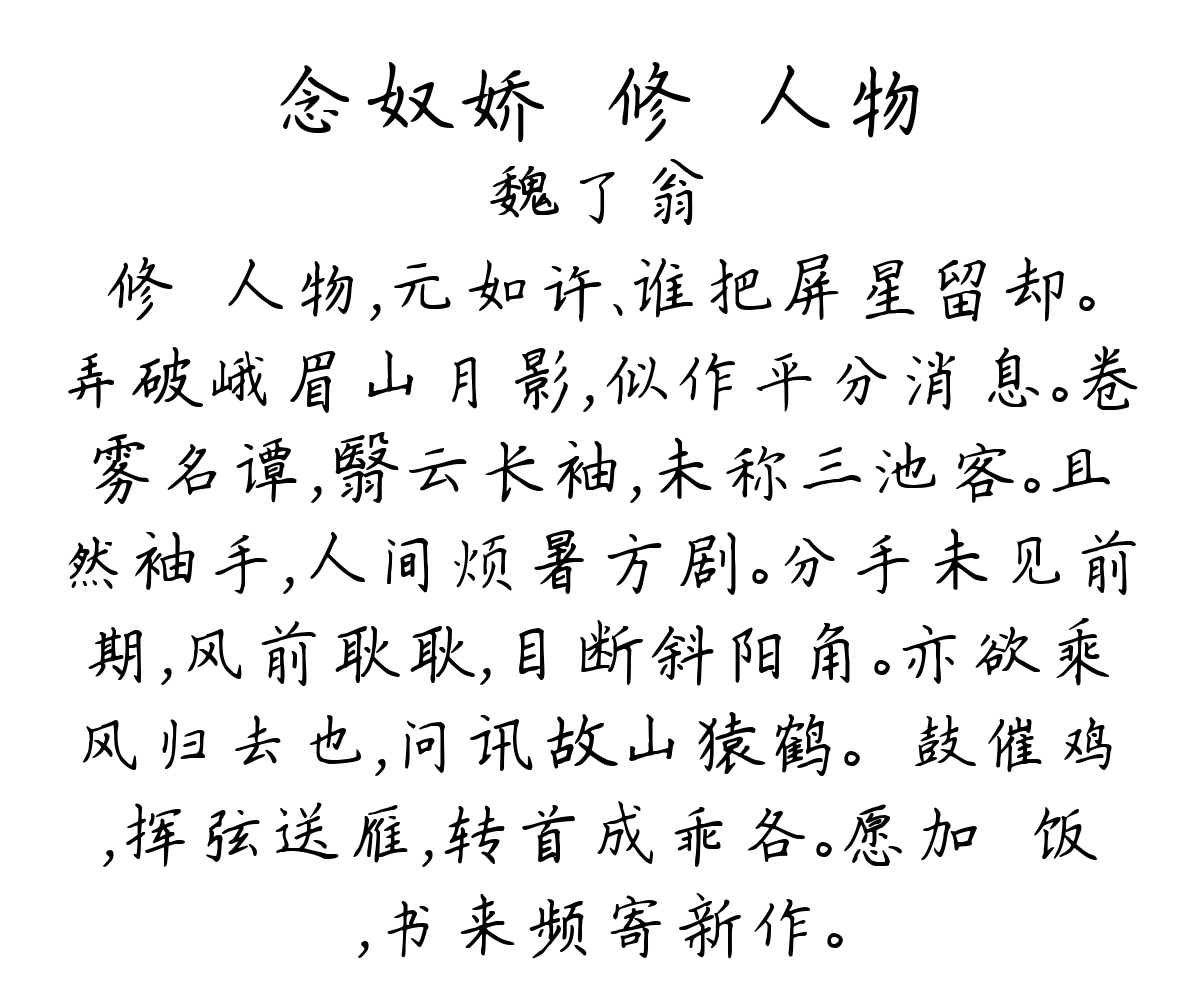 念奴娇 修 人物
魏了翁
修 人物,元如许、谁把屏星留却。
弄破峨眉山月影,似作平分消息。卷
雾名谭,翳云长袖,未称三池客。且
然袖手,人间烦暑方剧。分手未见前
期,风前耿耿,目断斜阳角。亦欲乘
风归去也,问讯故山猿鹤。 鼓催鸡
,挥弦送雁,转首成乖各。愿加 饭
,书来频寄新作。